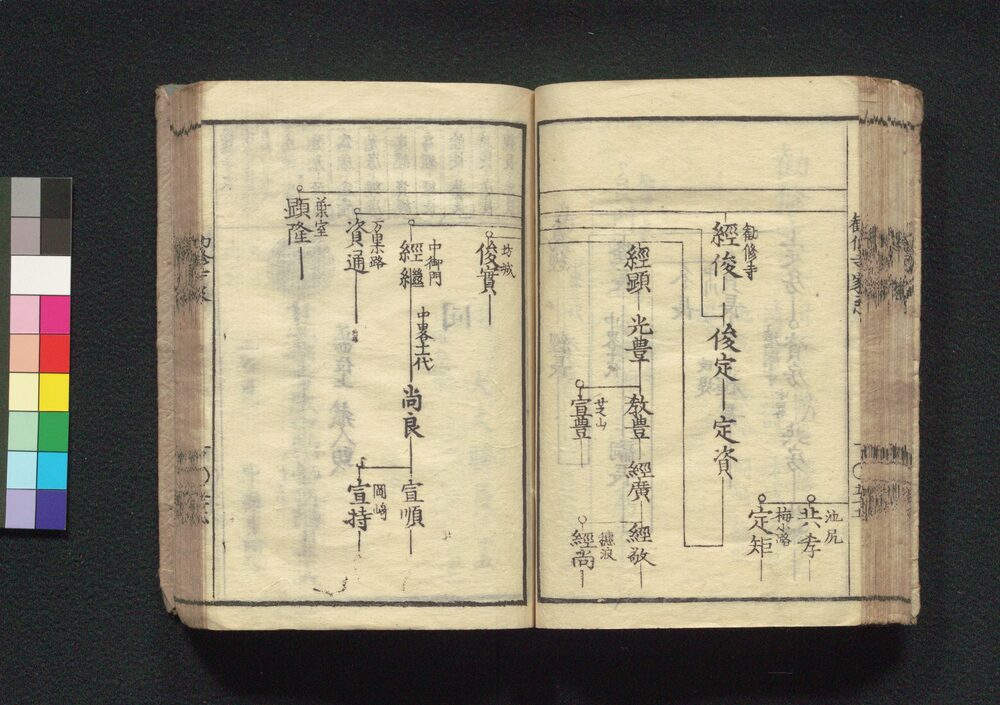 池尻
共孝
梅小路
定矩
勧修寺
經俊
俊定
定資
經顕
光豊
教豊
經廣
經敬
芝山
宣豊
穂波
經尚
坊城
俊實
中御門
經繼
中畧十二代
尚良
宣順
岡崎
宣持
万里小路
資通
葉室
顕隆